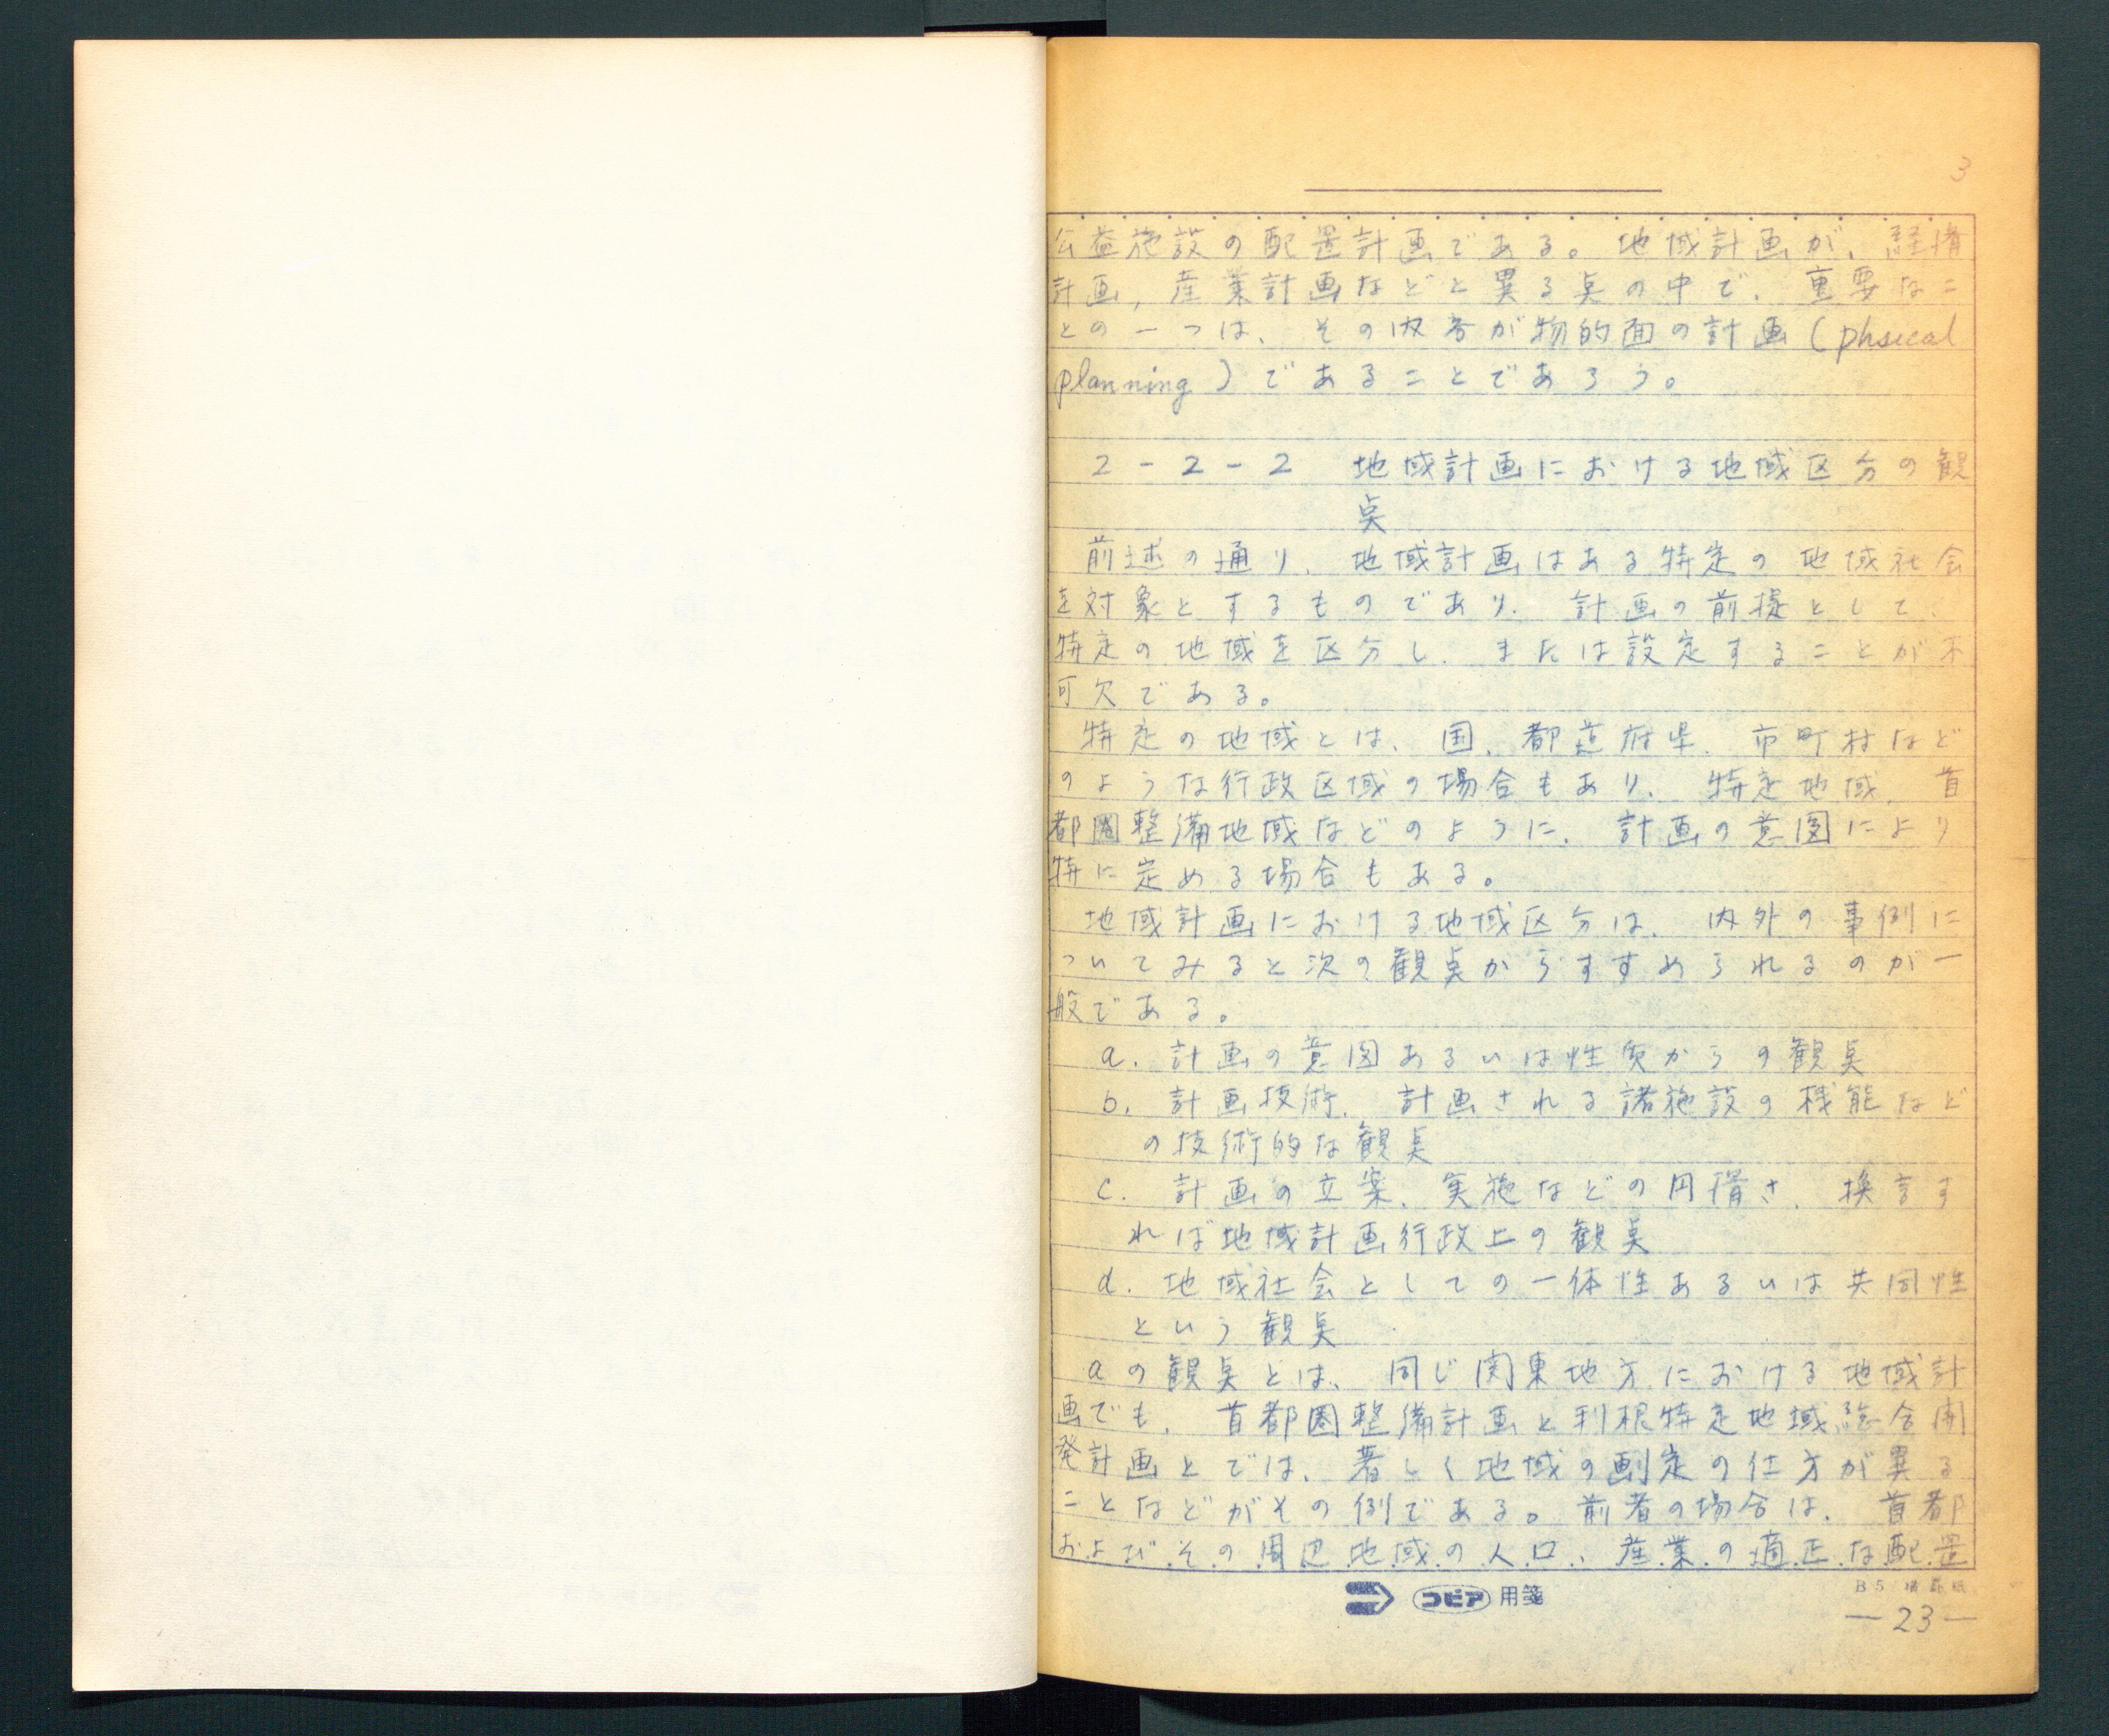 3
公益施設の配置計画である。地域計画が、経済
計画，産業計画などと異る点の中で、重要なこ
との一つは、その内容が物的面の計画（phsical
planning）であることであろう。
2－2－2　地域計画における地域区分の観
点
前述の通り、地域計画はある特定の地域社会
を対象とするものであり、計画の前提として、
特定の地域を区分し、または設定することが不
可欠である。
特定の地域とは、国、都道府県、市町村など
のような行政区域の場合もあり、特定地域、首
都圏整備地域などのように、計画の意図により
特に定める場合もある。
地域計画における地域区分は、内外の事例に
ついてみると次の観点からすすめられるのが一
般である。
a. 計画の意図あるいは性質からの観点
b. 計画技術、計画される諸施設の機能など
の技術的な観点
c. 計画の立案、実施などの円滑さ、換言す
れば地域計画行政上の観点
d. 地域社会としての一体性あるいは共同性
という観点
aの観点とは、同じ関東地方における地域計
画でも、首都圏整備計画と利根特定地域総合開
発計画とでは、著しく地域の劃定の仕方が異る
ことなどがその例である。前者の場合は、首都
およびその周辺地域の人口、産業の適正な配置
コピア 用箋
B5 横罫紙
—23—